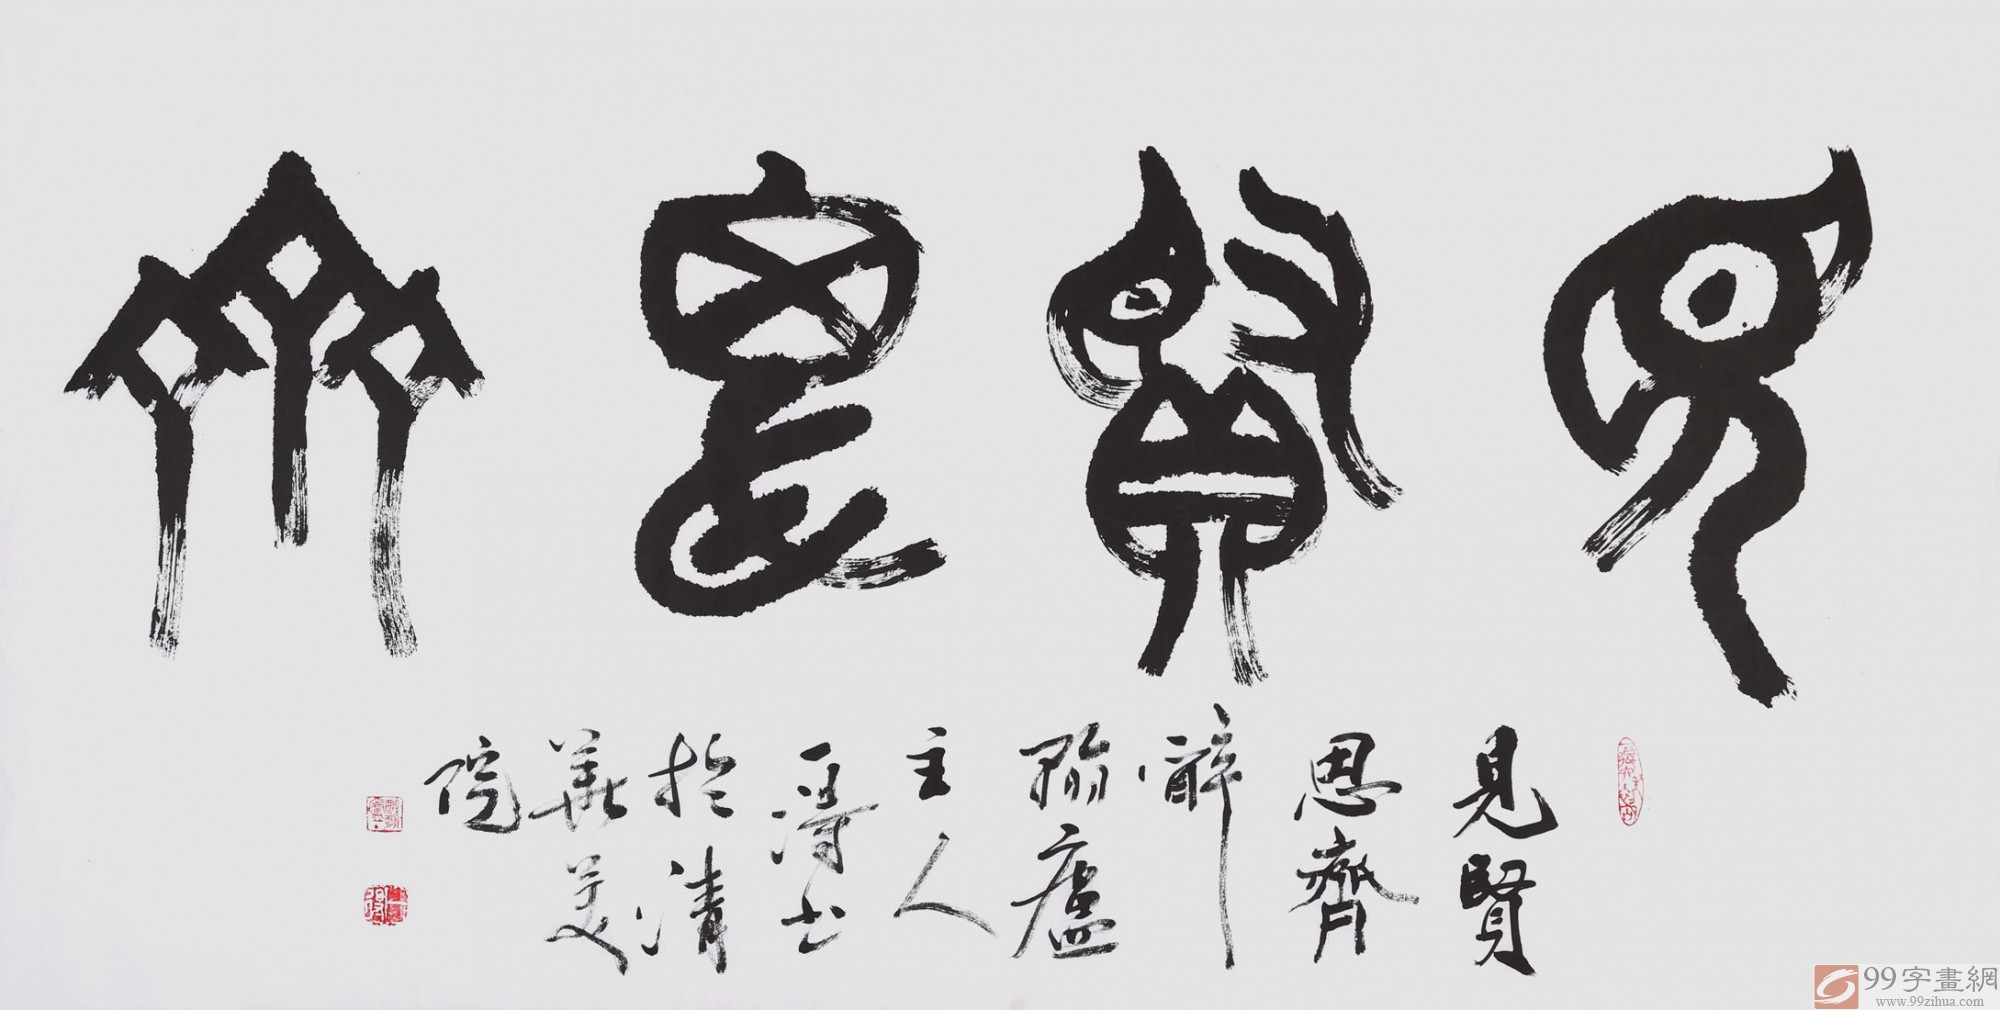 見賢思齊
見賢
思齊
辭
廬
主人
書
於清
華美
院
99字畫網
www.99zihua.com